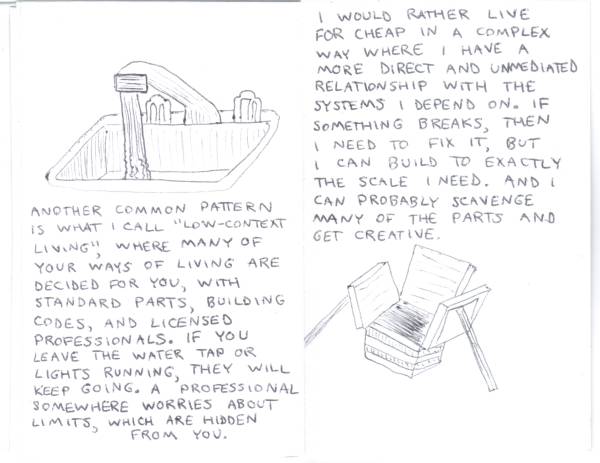 ANOTHER COMMON PATTERN
IS WHAT I CALL "LOW-CONTEXT
LIVING", WHERE MANY OF
YOUR WAYS OF LIVING ARE
DECIDED FOR YOU, WITH
STANDARD PARTS, BUILDING
CODES, AND LICENSED
PROFESSIONALS. IF YOU
LEAVE THE WATER TAP OR
LIGHTS RUNNING, THEY WILL
KEEP GOING. A PROFESSIONAL
SOMEWHERE WORRIES ABOUT
LIMITS, WHICH ARE HIDDEN
FROM YOU.
I WOULD RATHER LIVE
FOR CHEAP IN A COMPLEX
WAY WHERE I HAVE A
MORE DIRECT AND UNMEDIATED
RELATIONSHIP WITH THE
SYSTEMS I DEPEND ON. IF
SOMETHING BREAKS, THEN
I NEED TO FIX IT, BUT
I CAN BUILD TO EXACTLY
THE SCALE I NEED. AND I
CAN PROBABLY SCAVENGE
MANY OF THE PARTS AND
GET CREATIVE.